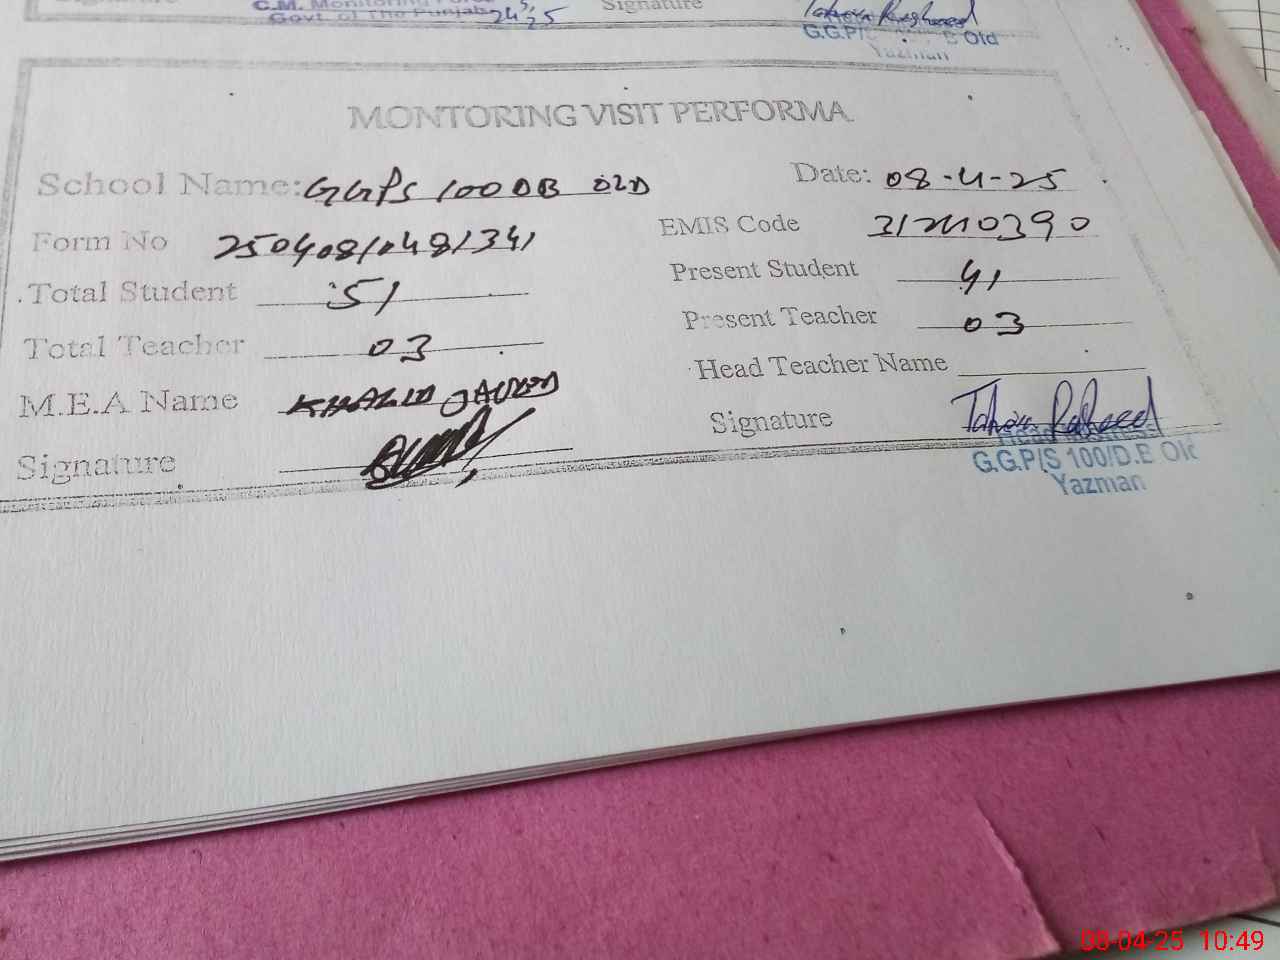 C.M. Monitoring Force
Govt. of The Punjab 24.5.25
Signature
Tahera Rasheed
G.G.P/S Old
Yazman
MONTORING VISIT PERFORMA
School Name: GGPS 100 DB OLD Date: 08-4-25
Form No 25040810481341 EMIS Code 31240390
Total Student 51 Present Student 41
Total Teacher 03 Present Teacher 03
M.E.A Name KHALID JAVED Head Teacher Name
Signature Signature Tahera Rasheed
Head Mistress
G.G.P/S 100/D.B Old
Yazman
08-04-25 10:49